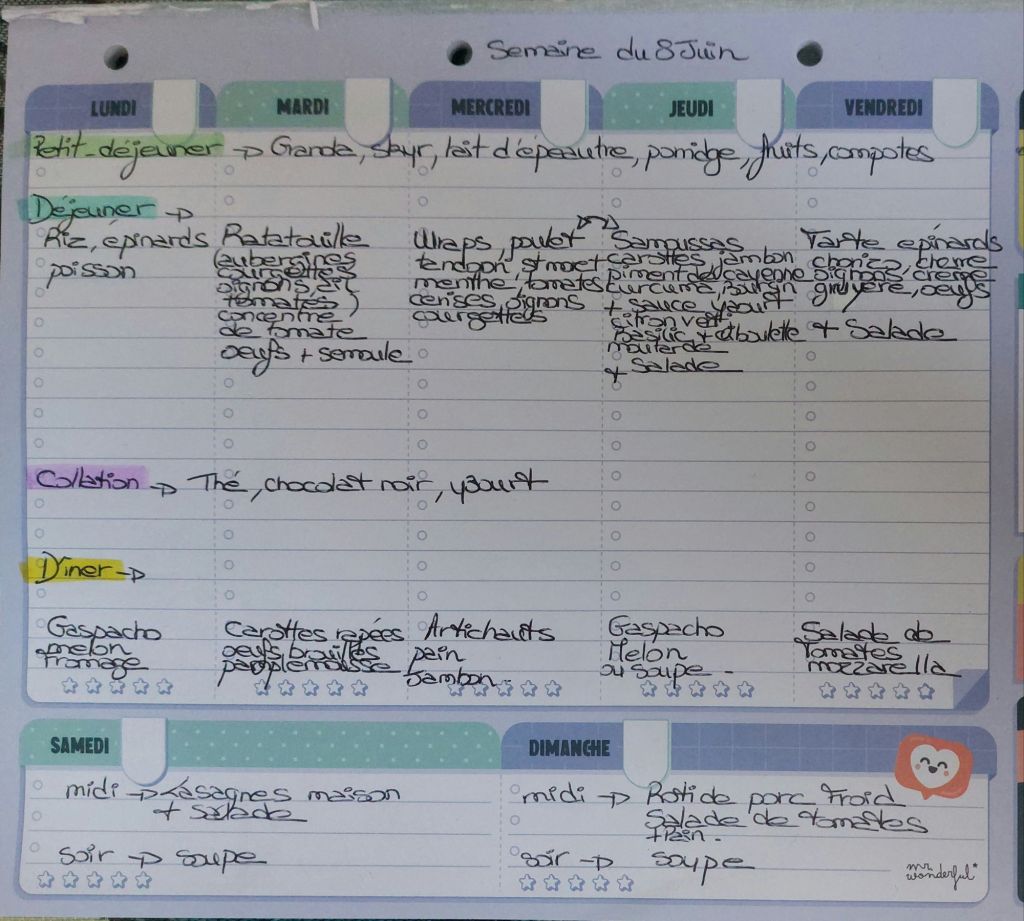 Semaine du 8 Juin
LUNDI
MARDI
MERCREDI
JEUDI
VENDREDI
Petit-déjeuner → Granola, skyr, lait d'épeautre, porridge, fruits, compotes
Déjeuner →
Riz, épinards
poisson
Ratatouille
(aubergines
courgettes
oignons, ail
tomates)
concentré
de tomate
oeufs + semoule
Wraps, poulet
tandoori, st moret
menthe, tomates
cerises, oignons
courgettes
Samoussas
carottes, jambon
piment de cayenne
curcuma, boursin
+ sauce yaourt
citron vert
basilic + ciboulette
moutarde
+ Salade
Tarte épinards
chorizo, crème
oignons, crème
gruyère, oeufs
+ Salade
Collation → Thé, chocolat noir, yaourt
Dîner →
Gaspacho
melon
fromage
Carottes rapées
oeufs brouillés
pamplemousse
Artichauts
pain
Jambon.
Gaspacho
Melon
ou soupe.
Salade de
tomates
mozzarella
SAMEDI
midi → Lasagnes maison
+ salade
soir → soupe
DIMANCHE
midi → Roti de porc froid
Salade de tomates
+ Pain.
soir → soupe
mr.
wonderful*